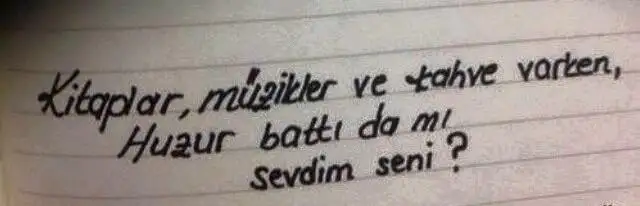 Kitaplar, müzikler ve kahve varken,
Huzur battı da mı
sevdim seni?